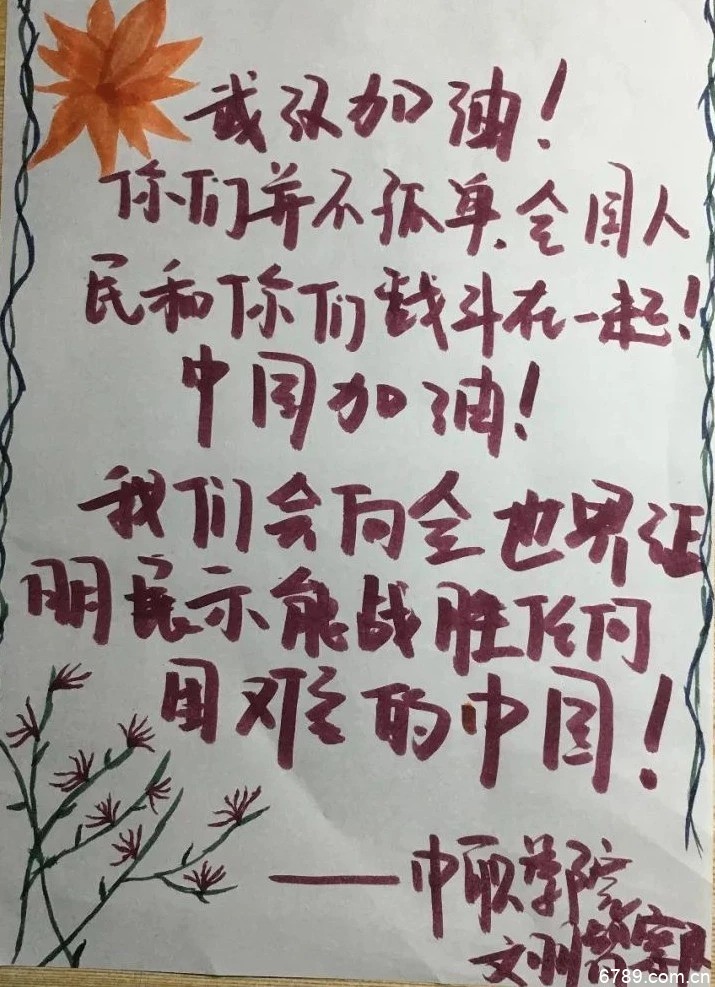 武汉加油!
你们并不孤单,全国人
民和你们战斗在一起!
中国加油!
我们会向全世界证
明展示能战胜任何
困难的中国!
——中职学院
6789.com.cn